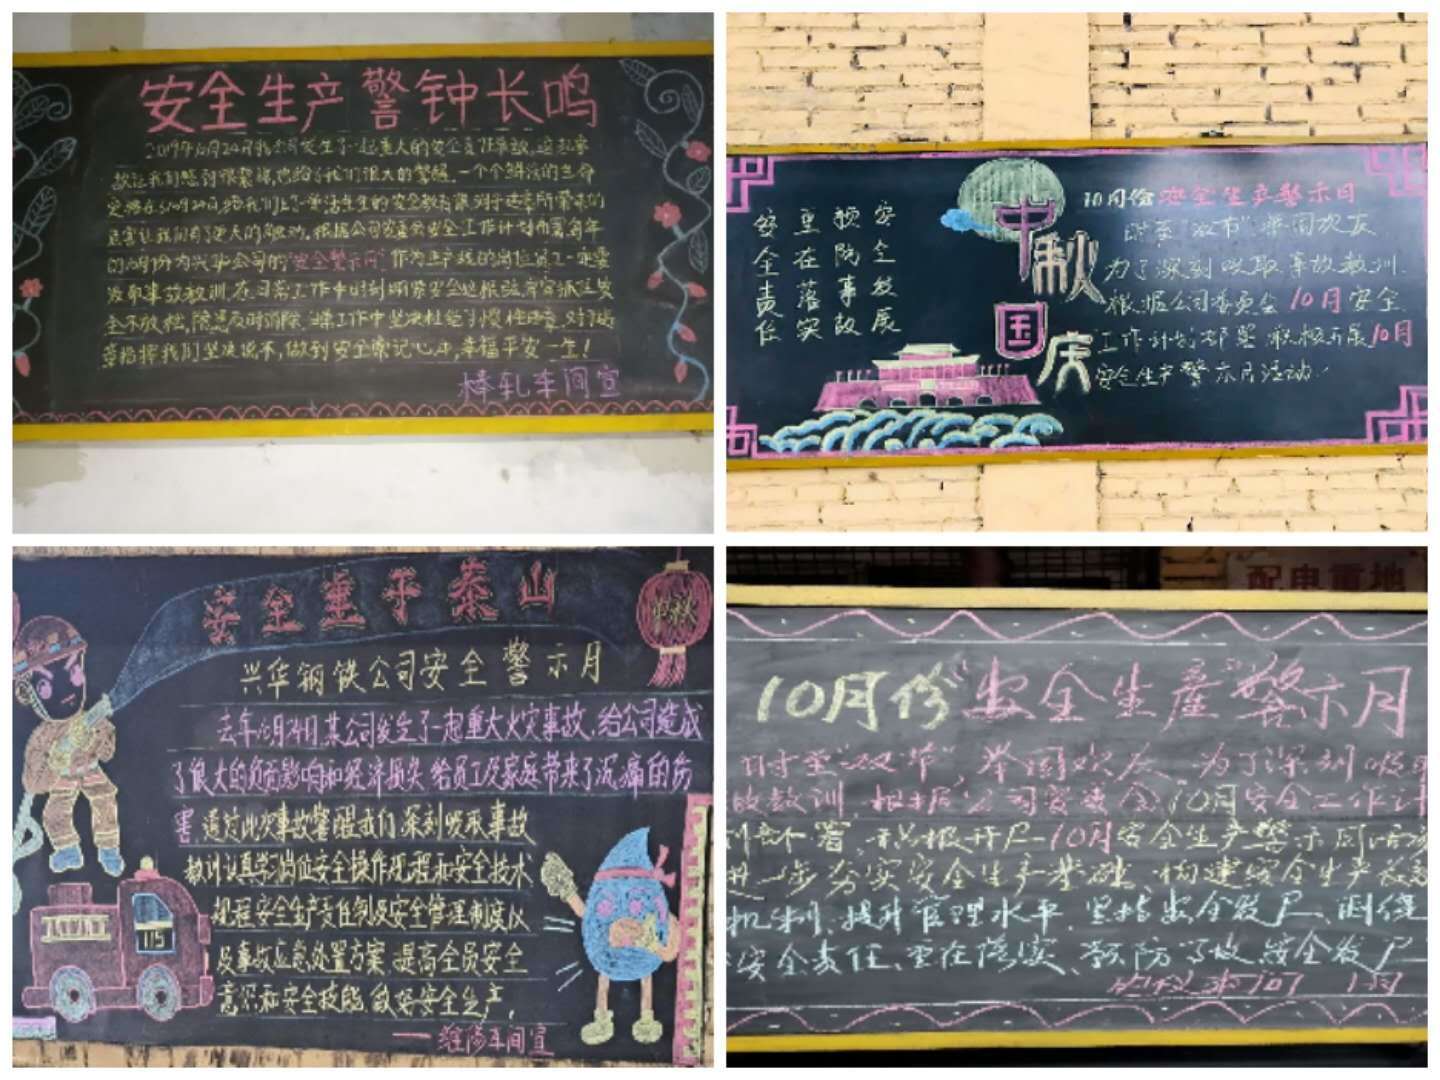 安全生产警钟长鸣
2019年10月24日我公司发生了一起重大的安全责任事故，这起事
故让我们感到很震撼，也给了我们很大的警醒，一个个鲜活的生命
危害让我们有了更大的触动。根据公司安委会安全工作计划布署，每年
的10月份为兴华公司的“安全警示月”作为生产线的岗位员工一定要
全不放松，隐患及时消除，
章指挥我们坚决说不，做到安全常记心中，幸福平安一生！
棒轧车间宣
安全发展
预防事故
重在落实
安全责任
中秋
国庆
10月份安全生产警示月
时至“双节”举国欢庆
为了深刻吸取事故教训，
根据公司安委会10月安全
工作计划部署，积极开展10月
安全生产警示月活动！
安全重于泰山
中秋
兴华钢铁公司安全警示月
去年10月24日某公司发生了一起重大火灾事故，给公司造成
了很大的负面影响和经济损失，给员工及家庭带来了沉痛的伤
害，通过此次事故警醒我们，深刻吸取事故
教训认真学习岗位安全操作规程和安全技术
规程安全生产责任制及安全管理制度以
及事故应急处置方案，提高全员安全
意识和安全技能，做好安全生产。
——维修车间宣
115
配电重地
10月份“安全生产”警示月
时至“双节”，举国欢庆，为了深刻吸取
故教训，根据公司安委会10月安全工作计
划布署，积极开展10月安全生产警示月活动
进一步夯实安全生产基础，构建安全生产长效
机制，提升管理水平，坚持安全发展，
安全责任，重在落实，预防事故，安全发展